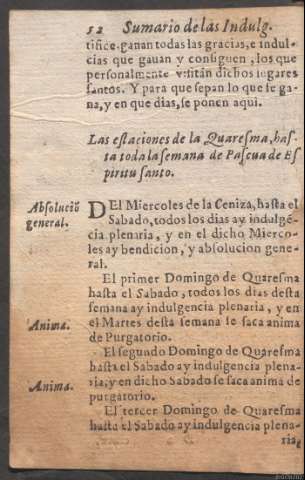 52 Sumario de las Indulg.
tifice ganan todas las gracias, e indul-
cias que gauan y consiguen, los que
personalmente visitan dichos lugares
santos. Y para que sepan lo que se ga-
na, y en que dias, se ponen aqui.
Las estaciones de la Quaresma, has-
ta toda la semana de Pascua de Es
piritu santo.
Absolució
general.
DEl Miercoles de la Ceniza, hasta el
Sabado, todos los dias ay indulgé-
cia plenaria, y en el dicho Mierco-
les ay bendicion, y absolucion gene-
ral.
El primer Domingo de Quaresma
hasta el Sabado, todos los dias desta
semana ay indulgencia plenaria, y en
Anima.
el Martes desta semana se saca anima
de Purgatorio.
El segundo Domingo de Quaresma
hasta el Sabado ay indulgencia plena-
Anima.
ria, y en dicho Sabado se saca anima de
purgatorio.
El tercer Domingo de Quaresma
hasta el Sabado ay indulgencia plena-
ria,